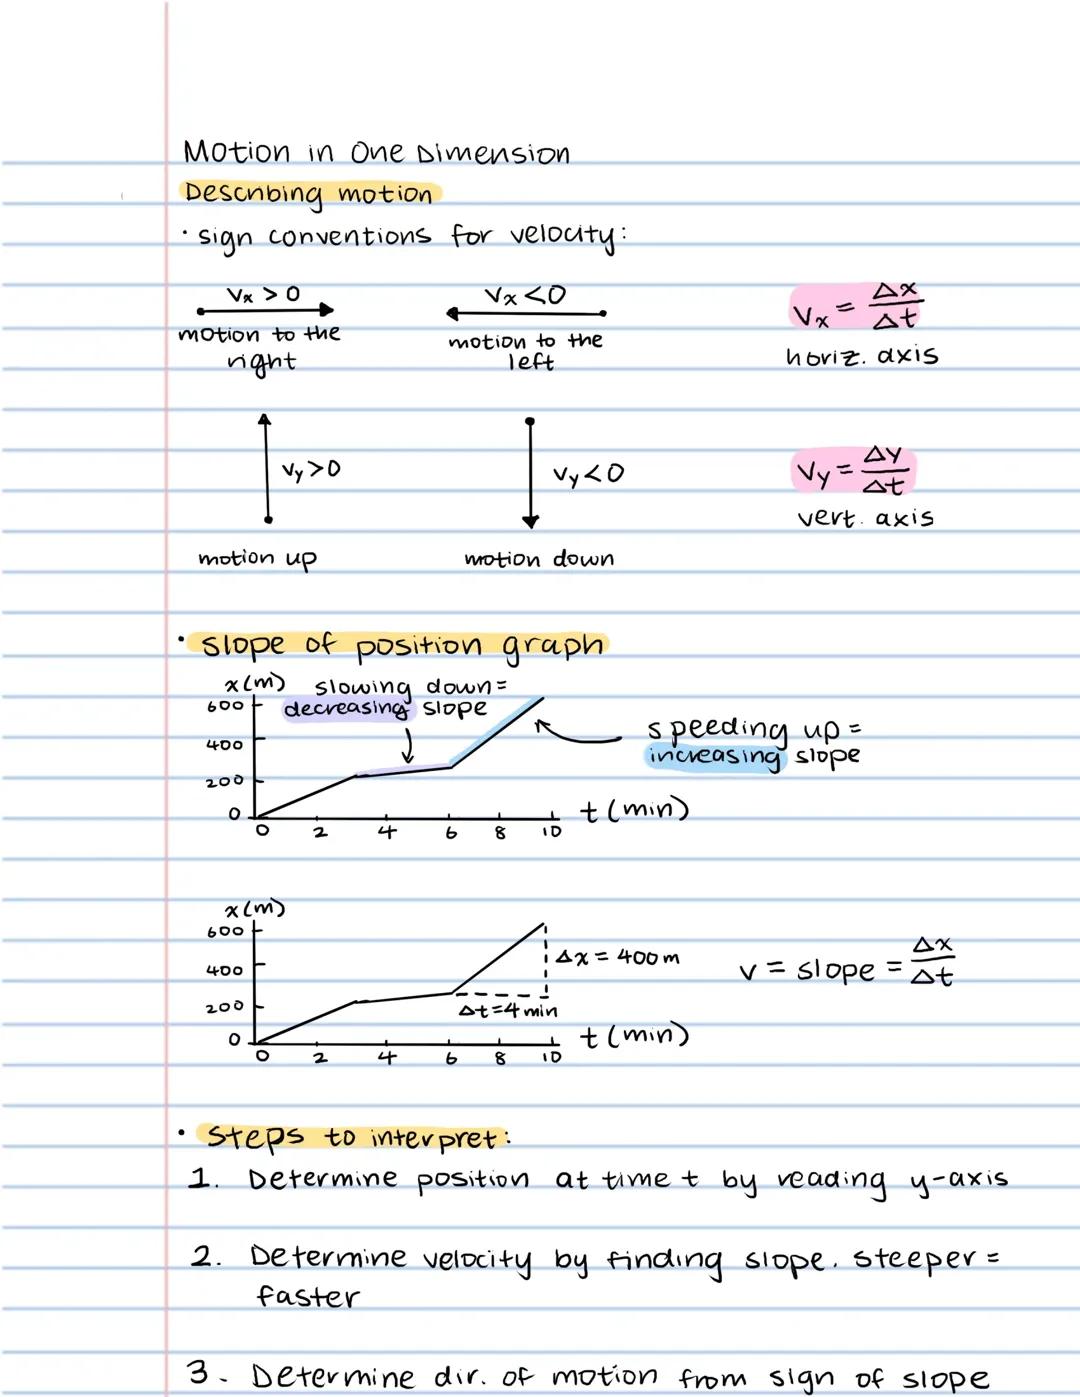 Motion in One Dimension
Describing motion
· sign conventions for velocity:
Vx > 0
Vx < 0
Vx = Δx/Δt
motion to the
right
motion to the
left
horiz. axis
Vy > 0
Vy < 0
Vy = Δy/Δt
vert. axis
motion up
motion down
· slope of position graph
x(m)
slowing down =
decreasing slope
600
400
200
0
speeding up =
increasing slope
t (min)
0 2 4 6 8 10
x(m)
600
400
200
0
Δx = 400 m
v = slope = Δx/Δt
Δt = 4 min
t (min)
0 2 4 6 8 10
· steps to interpret:
1. Determine position at time t by reading y-axis
2. Determine velocity by finding slope. steeper =
faster
3. Determine dir. of motion from sign of slope